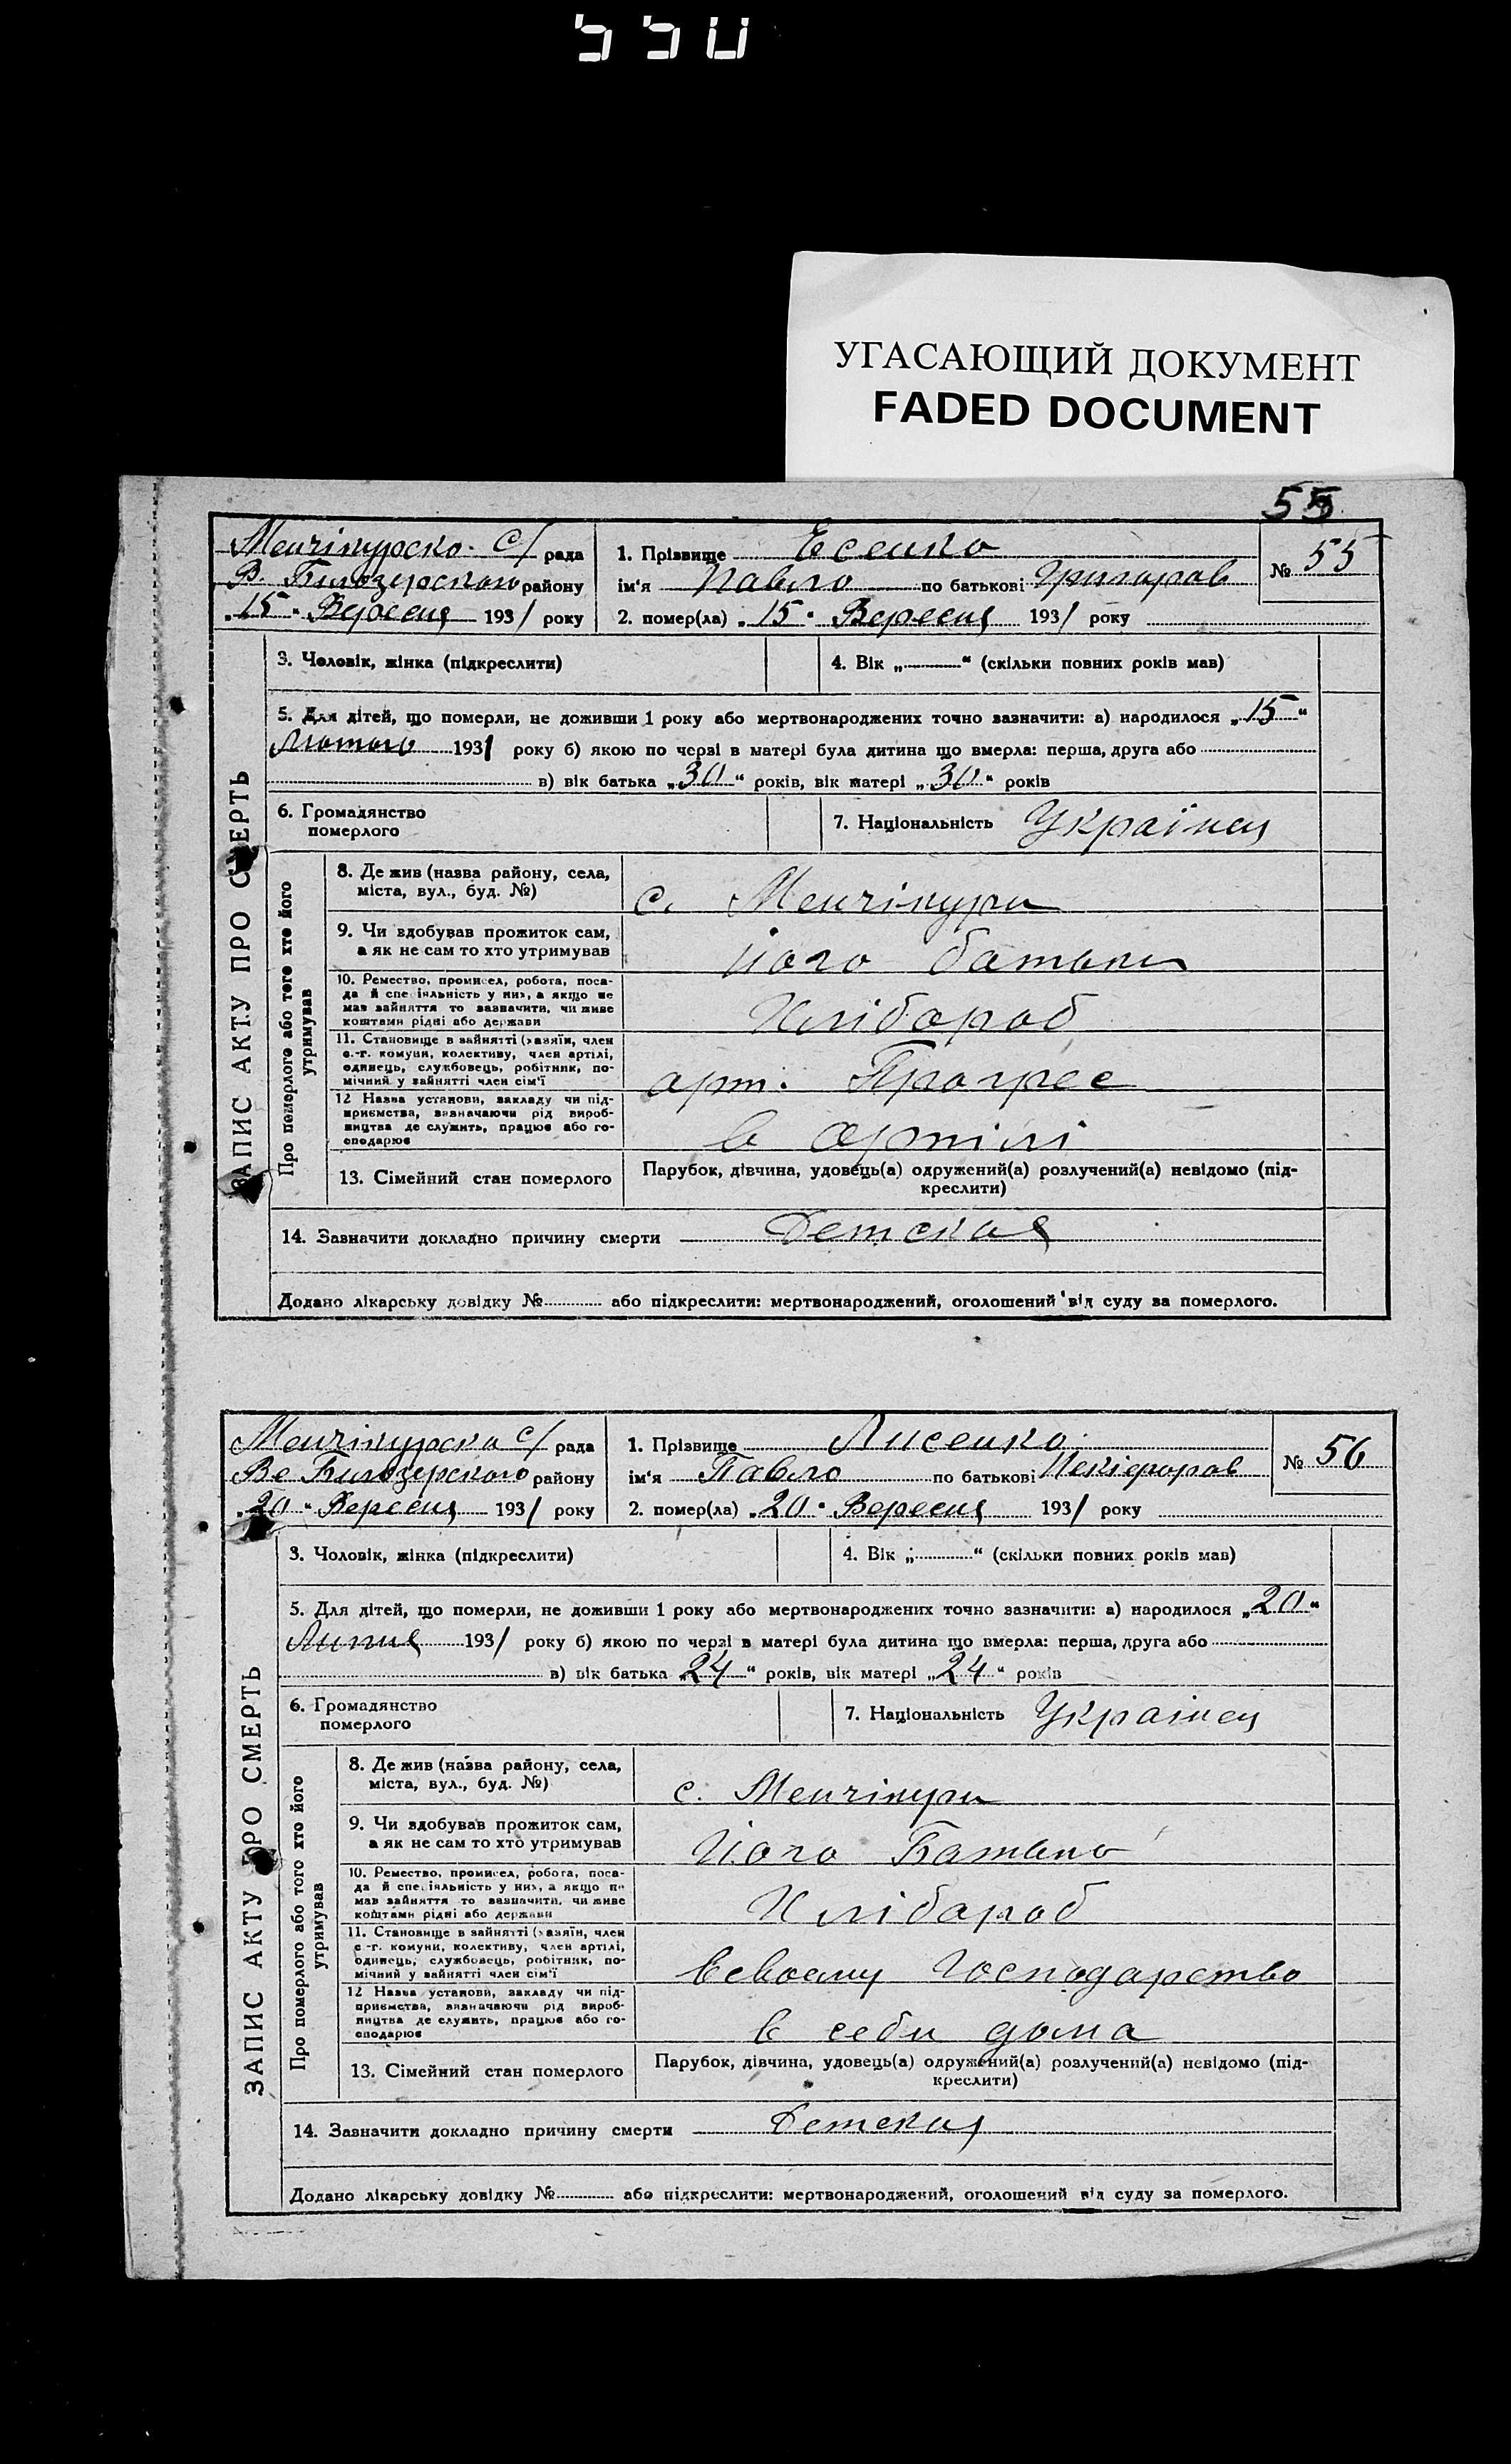 550
УГАСАЮЩИЙ ДОКУМЕНТ
FADED DOCUMENT
55
ЗАПИС АКТУ ПРО СМЕРТЬ
Менчікурско. с/ рада
В. Білозерского району
„15" Вересня 1931 року
1. Прізвище Есенко
ім'я Павло по батькові Григоров
№ 55
2. помер(ла) „15" Вересня 1931 року
3. Чоловік, жінка (підкреслити)
4. Вік „ " (скільки повних років мав)
5. Для дітей, що померли, не доживши 1 року або мертвонароджених точно зазначити: а) народилося „15"
Лютого 1931 року б) якою по черзі в матері була дитина що вмерла: перша, друга або
в) вік батька „30" років, вік матері „30" років
6. Громадянство
померлого
7. Національність Україней
Про померлого або того хто його
утримував
8. Де жив (назва району, села,
міста, вул., буд. №)
с. Менчікури
9. Чи здобував прожиток сам,
а як не сам то хто утримував
його батьки
10. Ремество, промисел, робота, поса-
да й спеціяльність у них, а якщо не
мав зайняття то зазначити, чи живе
коштами рідні або держави
Хлібороб
11. Становище в зайнятті (хазяїн, член
с.-г. комуни, колективу, член артілі,
одинець, службовець, робітник, по-
мічний у зайнятті член сім'ї
арт. Прогрес
12 Назва установи, закладу чи під-
приємства, визначаючи рід вироб-
ництва де служить, працює або го-
сподарює
в артілі
13. Сімейний стан померлого
Парубок, дівчина, удовець(а) одружений(а) розлучений(а) невідомо (під-
креслити)
14. Зазначити докладно причину смерти Детская
Додано лікарську довідку № або підкреслити: мертвонароджений, оголошений від суду за померлого.
ЗАПИС АКТУ ПРО СМЕРТЬ
Менчікурска с/ рада
Ве Білозерского району
„20" Вересня 1931 року
1. Прізвище Лисенко
ім'я Павло по батькові Некіфоров
№ 56
2. помер(ла) „20" Вересня 1931 року
3. Чоловік, жінка (підкреслити)
4. Вік „ " (скільки повних років мав)
5. Для дітей, що померли, не доживши 1 року або мертвонароджених точно зазначити: а) народилося „20"
Липня 1931 року б) якою по черзі в матері була дитина що вмерла: перша, друга або
в) вік батька „24" років, вік матері „24" років
6. Громадянство
померлого
7. Національність Україней
Про померлого або того хто його
утримував
8. Де жив (назва району, села,
міста, вул., буд. №)
с. Менчікури
9. Чи здобував прожиток сам,
а як не сам то хто утримував
Його Батько
10. Ремество, промисел, робота, поса-
да й спеціяльність у них, а якщо не
мав зайняття то зазначити, чи живе
коштами рідні або держави
Хлібароб
11. Становище в зайнятті (хазяїн, член
с.-г. комуни, колективу, член артілі,
одинець, службовець, робітник, по-
мічний у зайнятті член сім'ї
всвоему господарство
12 Назва установи, закладу чи під-
приємства, визначаючи рід вироб-
ництва де служить, працює або го-
сподарює
в себи дома
13. Сімейний стан померлого
Парубок, дівчина, удовець(а) одружений(а) розлучений(а) невідомо (під-
креслити)
14. Зазначити докладно причину смерти Детская
Додано лікарську довідку № або підкреслити: мертвонароджений, оголошений від суду за померлого.